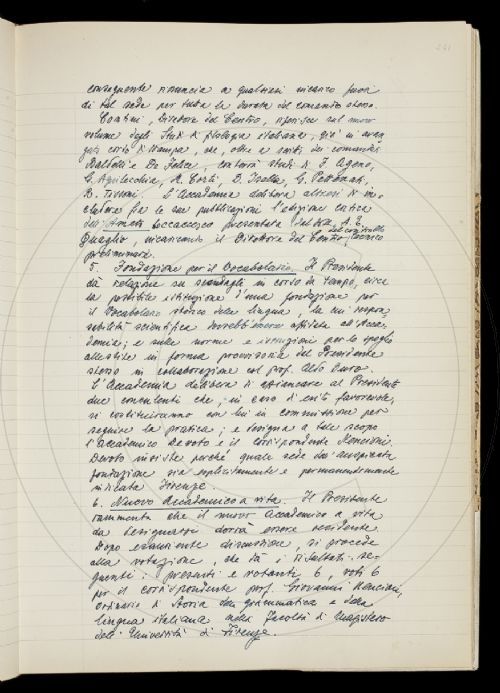 241
conseguente rinuncia a qualsiasi incarico fuori
di tal sede per tutta la durata del comando stesso.
Contini, Direttore del Centro, riferisce sul nuovo
volume degli Studi di filologia italiana, già in avan-
zato corso di stampa, che, oltre a scritti dei comandati
Balbetti e De Felice, conterrà studi di F. Ageno,
G. Aquilecchia, M. Corti, D. Isella, G. Petronat,
B. Tissoni. L'Accademia delibera altresì di in-
cludere fra le sue pubblicazioni l'edizione critica
dell'Ameto boccaccesco presentata dal prof. A. E.
Quaglio, incaricando il Direttore del Centro del controllo tecnico
preliminare.
5. Fondazione per il Vocabolario. Il Presidente
dà relazione su sondaggi in corso da tempo, circa
la possibile istituzione d'una fondazione per
il Vocabolario storico della lingua, la cui respon-
sabilità scientifica dovrebb'essere affidata all'Acca-
demia; e sulle norme e istruzioni per lo spoglio
allestite in forma provvisoria dal Presidente
stesso in collaborazione col prof. Aldo Duro.
L'Accademia delibera di affiancare al Presidente
due consulenti che, in caso di esito favorevole,
si costituiranno con lui in commissione per
seguire la pratica; e designa a tale scopo
l'accademico Devoto e il corrispondente Nencioni.
Devoto insiste perché quale sede dell'auspicata
fondazione sia esplicitamente e permanentemente
indicata Firenze.
6. Nuovo Accademico a vita. Il Presidente
rammenta che il nuovo Accademico a vita
da designarsi dovrà essere residente.
Dopo esauriente discussione, si procede
alla votazione, che dà i risultati se-
guenti: presenti e votanti 6, voti 6
per il corrispondente prof. Giovanni Nencioni,
ordinario di Storia della grammatica e della
lingua italiana nella Facoltà di Magistero
dell'Università di Firenze.